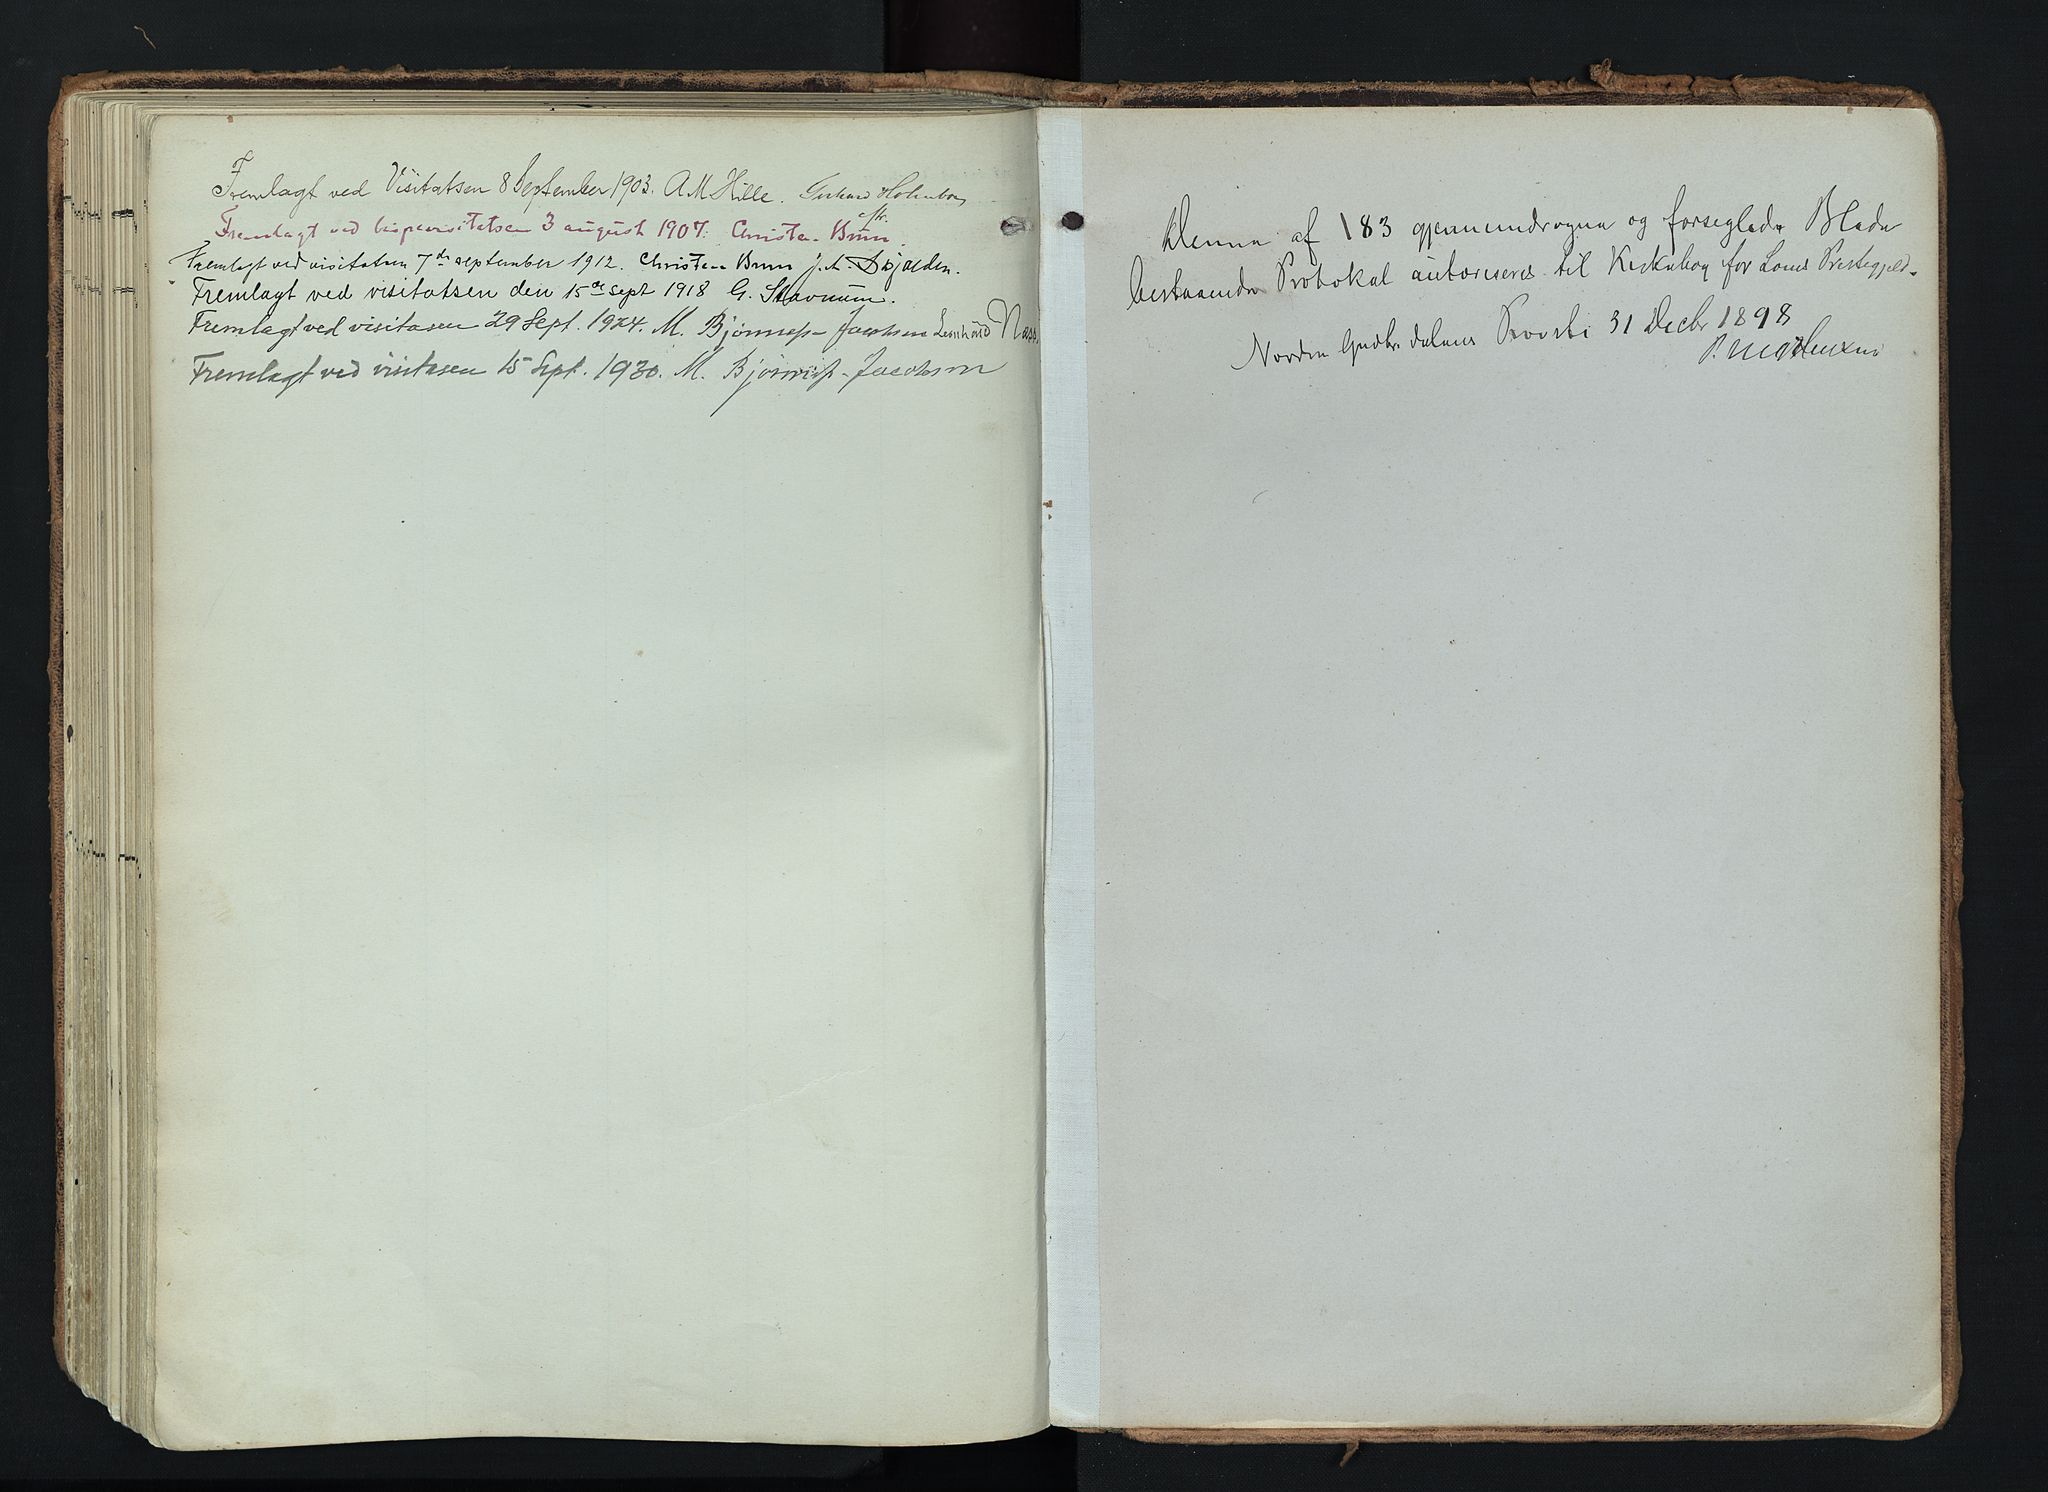 Fremlagt ved Visitatsen 8 September 1903. A M Hille. Gerhard Holmboe
str.
Fremlagt ved bispevisitatsen 3 august 1907. Christen Brun.
Fremlagt ved visitatsen 7de september 1912. Christen Brun J. A.
Fremlagt ved visitatsen den 15de sept 1918 G. Stavnum.
Fremlagt ved visitasen 29 Sept. 1924. M. Bjønness-Jacobsen Leonhard Næss.
Fremlagt ved visitasen 15 Sept. 1930. M. Bjønness-Jacobsen
Denne af 183 gjennemdragne og forseglede Blade
bestaaende Protokal autoriseres til Kirkebog for Loms Prestegjeld.
Nordre Gudbr.dalens Provsti 31 Decbr 1898